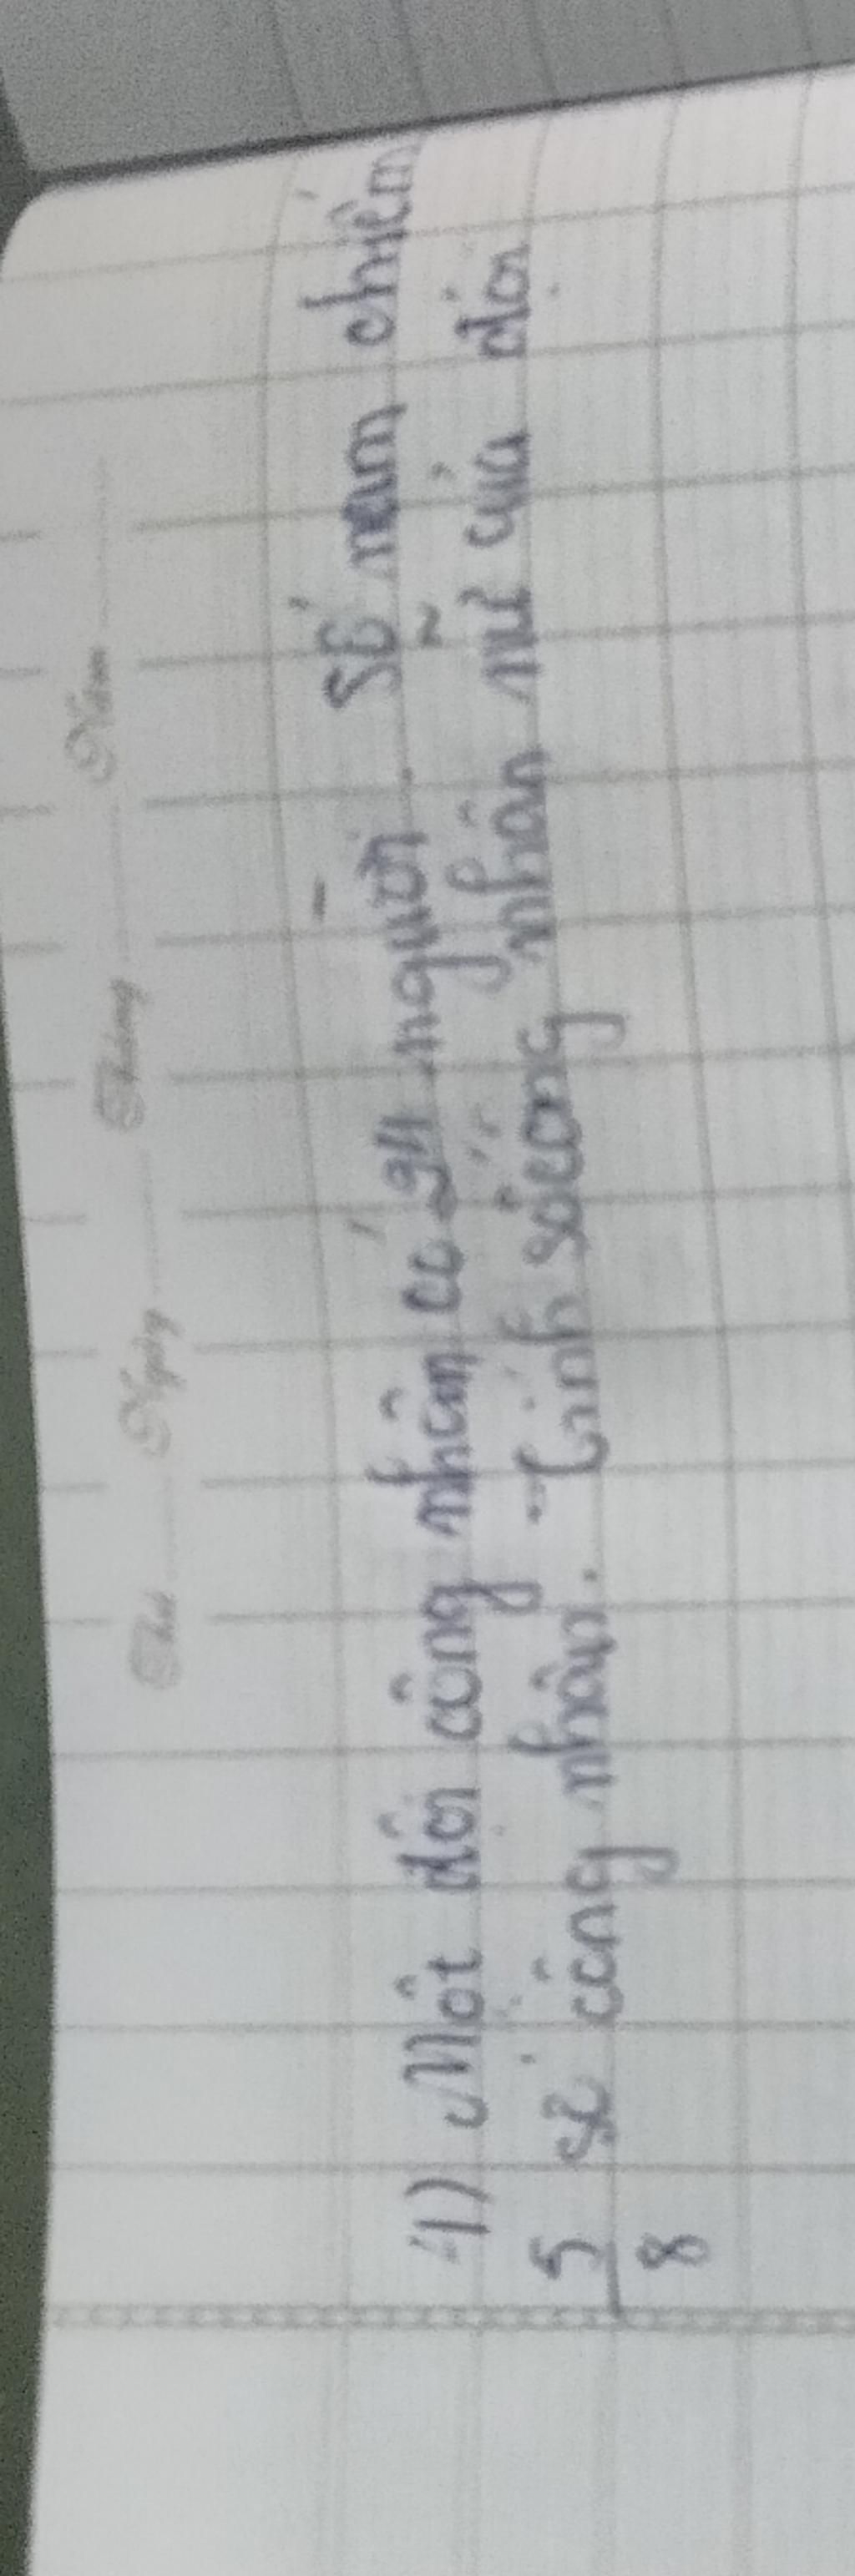 Thứ Ngày Tháng Năm
1) Một đội công nhân có 24 người. Số nam chiếm
5/8 số công nhân. Tính số công nhân nữ của đội